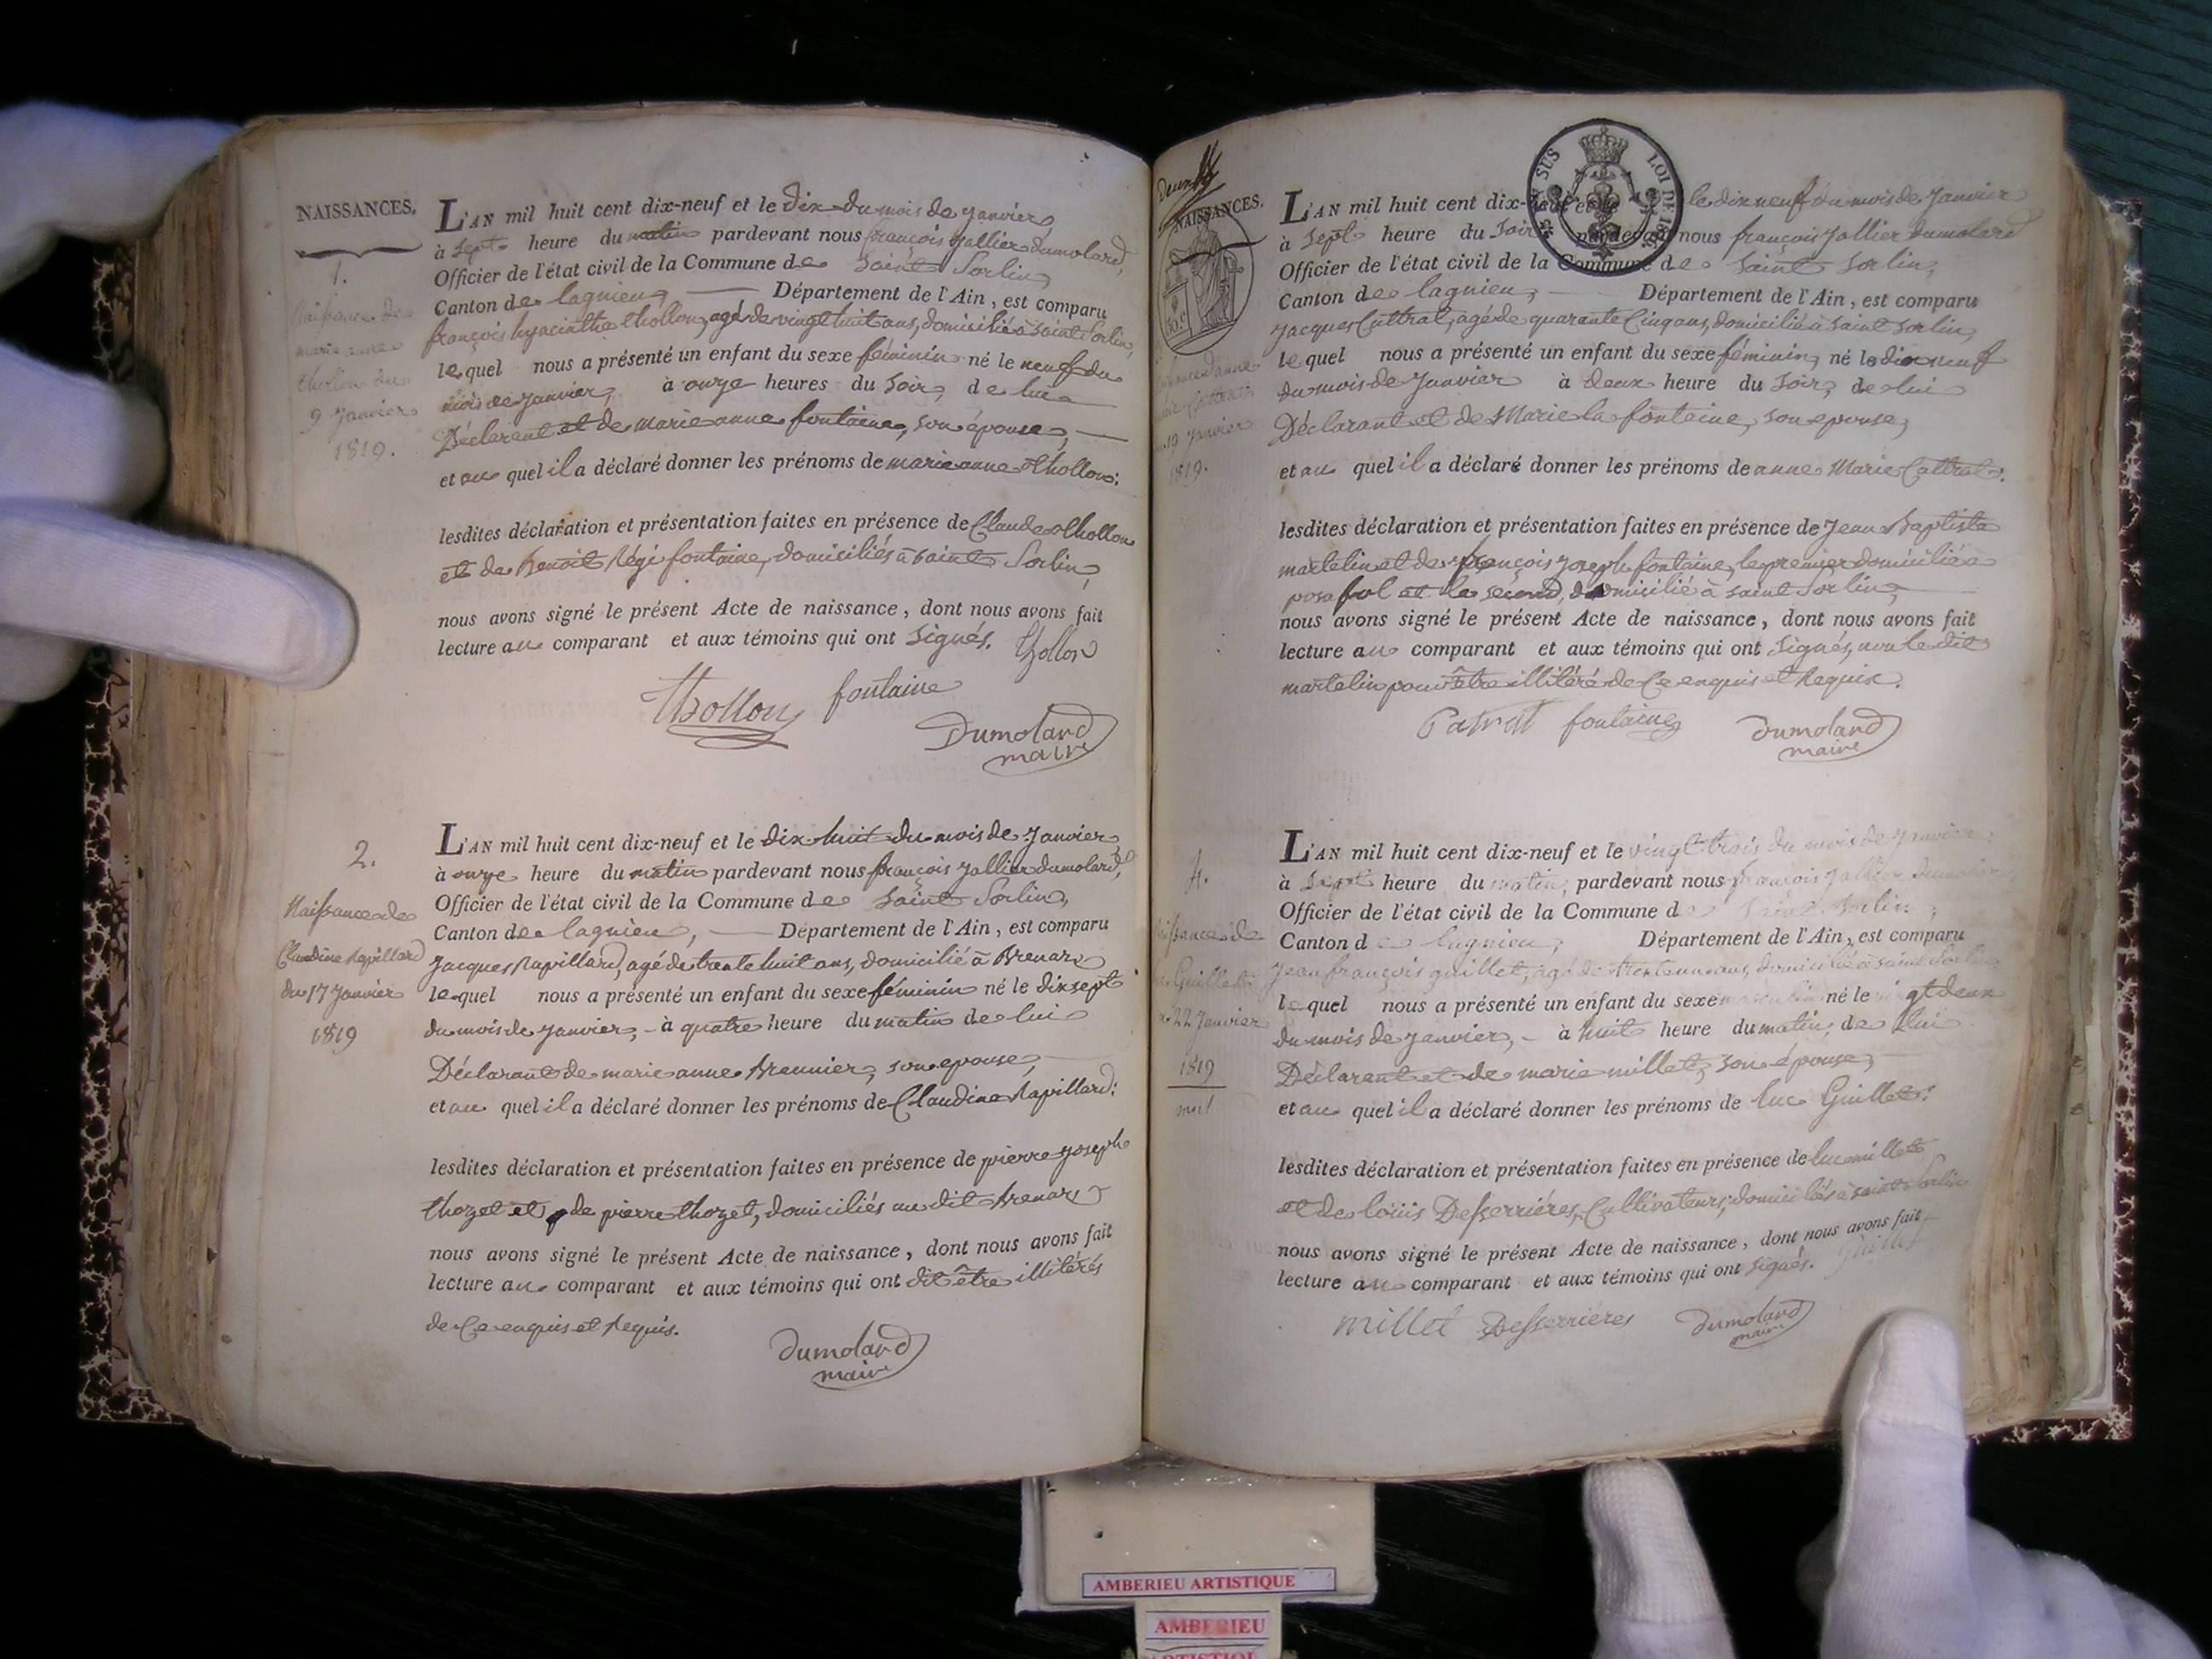 NAISSANCES.
1.
Naissance de
marie anne
thollon du
9 Janvier
1819.
L'AN mil huit cent dix-neuf et le dix du mois de Janvier,
à sept heure du matin pardevant nous françois Jallier Dumolard,
Officier de l'état civil de la Commune de Saint Sorlin,
Canton de lagnieu, Département de l'Ain, est comparu
françois hyacinthe thollon, agé de vingt huit ans, domicilié à Saint Sorlin,
lequel nous a présenté un enfant du sexe féminin né le neuf du
mois de Janvier, à onze heures du Soir, de lui
Déclarant et de marie anne fontaine, son épouse,
et au quel il a déclaré donner les prénoms de marie anne thollon:
lesdites déclaration et présentation faites en présence de Claude thollon
et de Benoit Régi fontaine, domiciliés à Saint Sorlin,
nous avons signé le présent Acte de naissance, dont nous avons fait
lecture au comparant et aux témoins qui ont Signés. thollon
thollon fontaine
Dumolard
maire
2.
Naissance de
Claudine Rapillard
du 17 Janvier
1819
L'AN mil huit cent dix-neuf et le dix huit du mois de Janvier,
à onze heure du matin pardevant nous françois Jallier dumolard,
Officier de l'état civil de la Commune de Saint Sorlin,
Canton de lagnieu, Département de l'Ain, est comparu
Jacques Rapillard, agé de trente huit ans, domicilié à Brenars
lequel nous a présenté un enfant du sexe féminin né le dix sept
du mois de Janvier, à quatre heure du matin de lui
Déclarant de marie anne Breunier, son epouse,
et au quel il a déclaré donner les prénoms de Claudine Rapillard:
lesdites déclaration et présentation faites en présence de pierre Joseph
thozet et de pierre thozet, domiciliés au dit Brenars
nous avons signé le présent Acte de naissance, dont nous avons fait
lecture au comparant et aux témoins qui ont dit être illitérés
de Ce enquis et Requis.
Dumolard
maire
NAISSANCES.
19 Janvier
1819.
SUS LOI DE
L'AN mil huit cent dix-neuf et le dix neuf du mois de Janvier
à Sept heure du Soir pardevant nous françois Jallier Dumolard
Officier de l'état civil de la Commune de Saint Sorlin,
Canton de lagnieu, Département de l'Ain, est comparu
Jacques Cattrat, agé de quarante Cinq ans, domicilié à Saint Sorlin,
lequel nous a présenté un enfant du sexe féminin, né le dix neuf
du mois de Janvier à deux heure du Soir, de lui
Déclarant et de Marie la fontaine, son epouse,
et au quel il a déclaré donner les prénoms de anne Marie Cattrat:
lesdites déclaration et présentation faites en présence de Jean Baptiste
martelin et de françois Joseph fontaine, le premier domicilié à
posafol et le second, domicilié à saint Sorlin,
nous avons signé le présent Acte de naissance, dont nous avons fait
lecture au comparant et aux témoins qui ont Signés, non le dit
martelin pour être illitéré de Ce enquis et Requis.
fontaine Dumolard
maire
4.
Naissance de
Guillet
22 Janvier
1819
mort
L'AN mil huit cent dix-neuf et le vingt trois du mois de Janvier
à Sept heure du matin, pardevant nous françois Jallier Dumolard
Officier de l'état civil de la Commune de Saint Sorlin,
Canton de lagnieu, Département de l'Ain, est comparu
Jean françois guillet, agé de ans, domicilié à saint Sorlin
lequel nous a présenté un enfant du sexe masculin né le vingt deux
du mois de Janvier, à huit heure du matin, de lui
Déclarant et de marie millet, son épouse,
et au quel il a déclaré donner les prénoms de luc Guillet:
lesdites déclaration et présentation faites en présence de luc millet
et de loüis Desserriéres, Cultivateurs, domiciliés à saint Sorlin
nous avons signé le présent Acte de naissance, dont nous avons fait
lecture au comparant et aux témoins qui ont Signés. Guillet
millet Desserrieres Dumolard
maire
AMBERIEU ARTISTIQUE
AMBERIEU
ARTISTIQUE